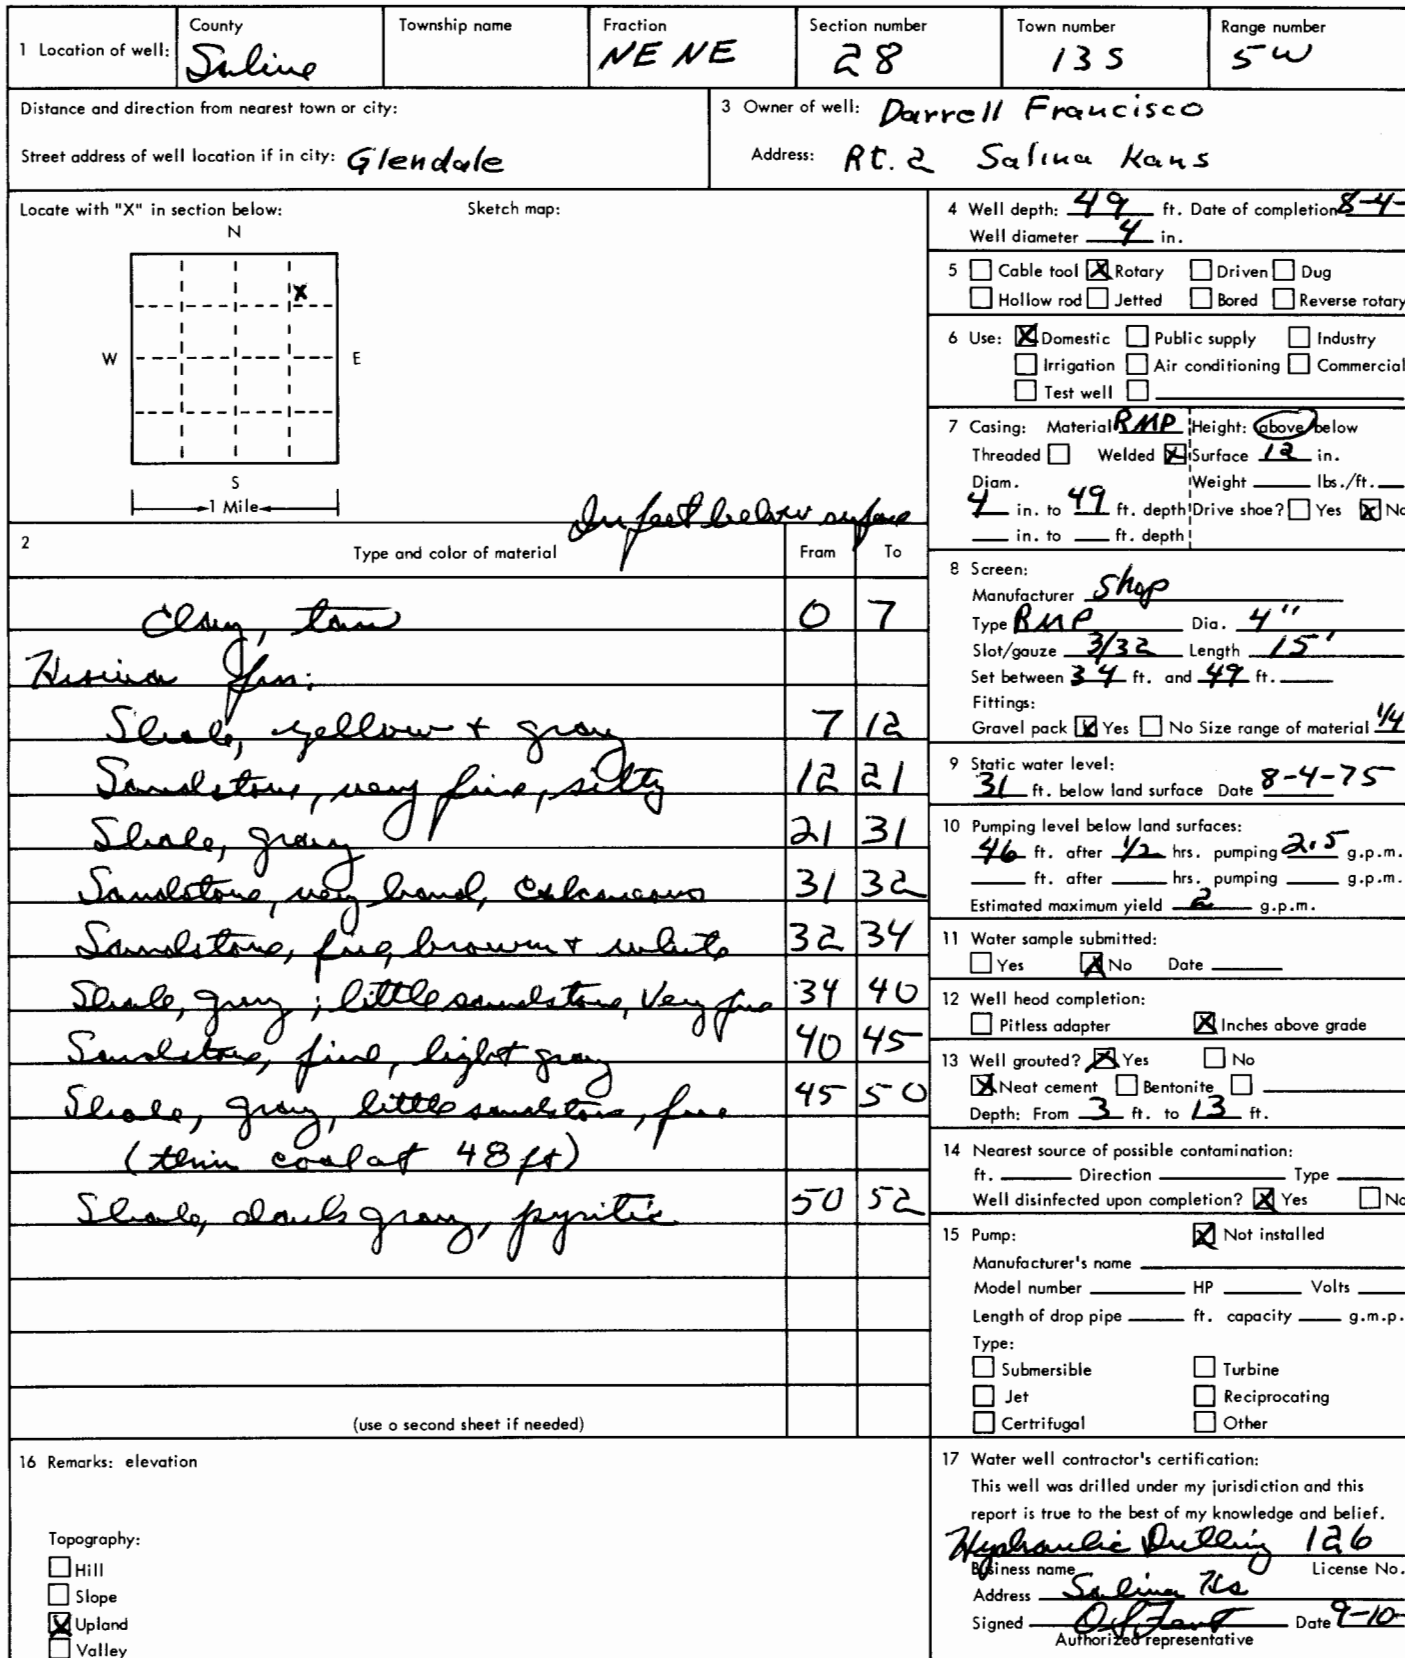 1 Location of well: County Saline Township name Fraction NE NE Section number 28 Town number 13 S Range number 5 W
Distance and direction from nearest town or city:
Street address of well location if in city: Glendale
3 Owner of well: Darrell Francisco
Address: Rt. 2 Salina Kans
Locate with "X" in section below: Sketch map:
N
X
W E
S
1 Mile
In feet below surface
2 Type and color of material Fram To
Clay, tan 0 7
fm:
Shale, yellow + gray 7 12
Sandstone, very fine, silty 12 21
Shale, gray 21 31
Sandstone, very hard, calcareous 31 32
Sandstone, fine, brown + white 32 34
Shale, gray; little sandstone, very fine 34 40
Sandstone, fine, light gray 40 45
Shale, gray, little sandstone, fine 45 50
(thin coal at 48 ft)
Shale, dark gray, pyritic 50 52
(use o second sheet if needed)
16 Remarks: elevation
Topography:
Hill
Slope
X Upland
Valley
4 Well depth: 49 ft. Date of completion 8-4-
Well diameter 4 in.
5 Cable tool X Rotary Driven Dug
Hollow rod Jetted Bored Reverse rotary
6 Use: X Domestic Public supply Industry
Irrigation Air conditioning Commercial
Test well
7 Casing: Material RMP Height: above below
Threaded Welded X Surface 12 in.
Diam. Weight lbs./ft.
4 in. to 49 ft. depth Drive shoe? Yes X No
in. to ft. depth
8 Screen:
Manufacturer Shop
Type RMP Dia. 4"
Slot/gauze 3/32 Length 15'
Set between 34 ft. and 49 ft.
Fittings:
Gravel pack X Yes No Size range of material 1/4
9 Static water level:
31 ft. below land surface Date 8-4-75
10 Pumping level below land surfaces:
46 ft. after 1/2 hrs. pumping 2.5 g.p.m.
ft. after hrs. pumping g.p.m.
Estimated maximum yield 2 g.p.m.
11 Water sample submitted:
Yes X No Date
12 Well head completion:
Pitless adapter X Inches above grade
13 Well grouted? X Yes No
X Neat cement Bentonite
Depth: From 3 ft. to 13 ft.
14 Nearest source of possible contamination:
ft. Direction Type
Well disinfected upon completion? X Yes No
15 Pump: X Not installed
Manufacturer's name
Model number HP Volts
Length of drop pipe ft. capacity g.m.p.
Type:
Submersible Turbine
Jet Reciprocating
Certrifugal Other
17 Water well contractor's certification:
This well was drilled under my jurisdiction and this
report is true to the best of my knowledge and belief.
Hydraulic Drilling 126
Business name License No.
Address Salina Ks
Signed Date 9-10-
Authorized representative